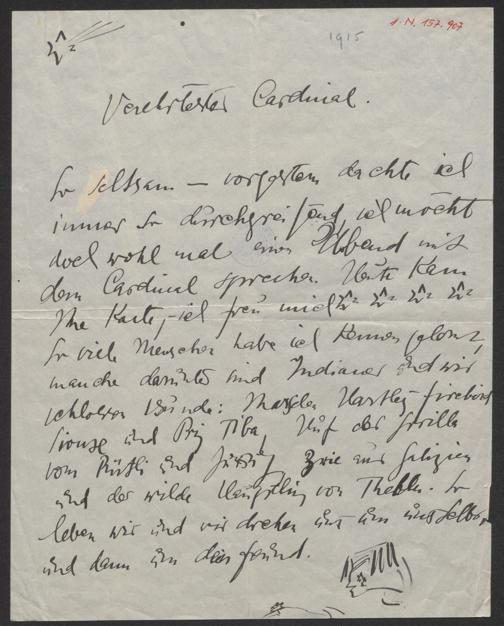 1915
I.N. 157.907
Verehrtester Cardinal.
So seltsam — vorgestern dachte ich
immer so durchgreifend, ich möcht
doch wohl mal einen Abend mit
dem Cardinal sprechen. Heute kam
Ihre Karte, – ich freu mich
So viele Menschen habe ich kennen gelernt,
manche darunter sind Indianer und wir
schlossen Bünde: Marsden Hartley firebird
Sioux und Prinz Tiba, der
vom und aus Galizien
und der wilde Häuptling von Theben. So
leben wir und wir drehen uns um uns selbst,
und dann um den